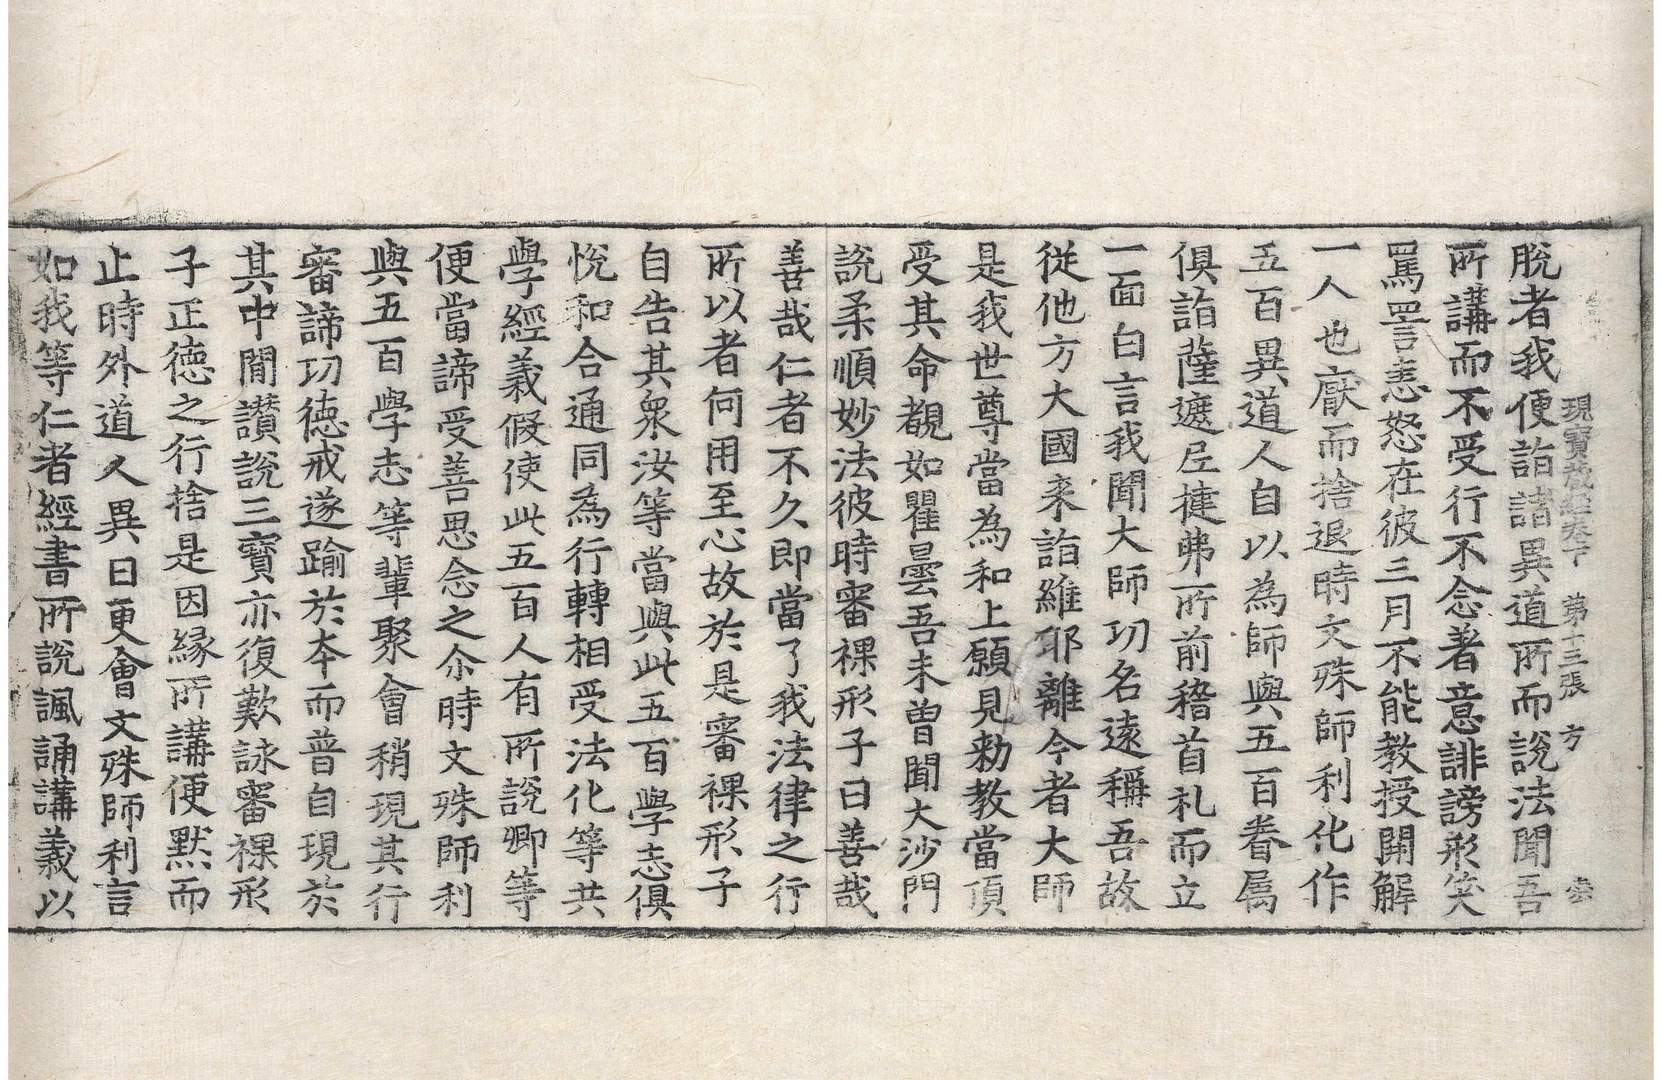 現寶藏經卷下 第十三張 方
脫者我便詣諸異道所而說法聞吾
所講而不受行不念著意誹謗形笑
罵詈恚怒在彼三月不能教授開解
一人也厭而捨退時文殊師利化作
五百異道人自以為師與五百眷属
俱詣薩遮尼揵弗所前稽首礼而立
一面白言我聞大師功名遠稱吾故
從他方大國来詣維耶離今者大師
是我世尊當為和上願見勑教當頂
受其命覩如瞿曇吾未曾聞大沙門
說柔順妙法彼時審裸形子曰善哉
善哉仁者不久即當了我法律之行
所以者何用至心故於是審裸形子
自告其衆汝等當與此五百學志俱
悅和合通同為行轉相受法化等共
學經義假使此五百人有所說卿等
便當諦受善思念之尒時文殊師利
與五百學志等輩聚會稍現其行
審諦功徳戒遂踰於夲而普自現於
其中間讃說三寶亦復歎詠審裸形
子正徳之行捨是因緣所講便黙而
止時外道人異日更會文殊師利言
如我等仁者經書所說諷誦講義以